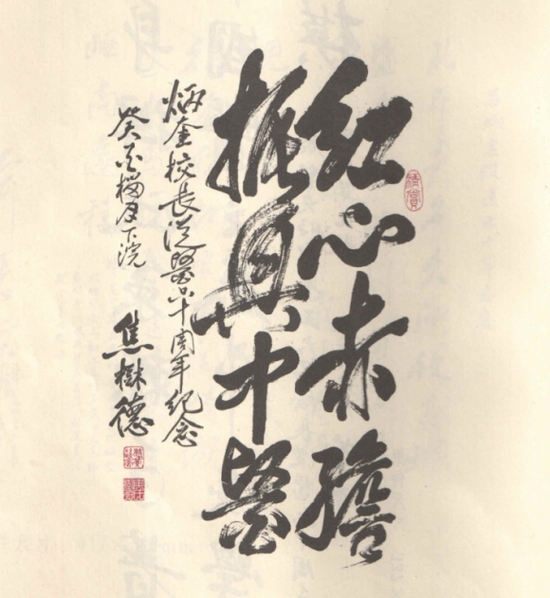 红心赤膽
振興中醫
炳金校長從醫六十周年纪念
癸酉榴月下浣 焦樹德